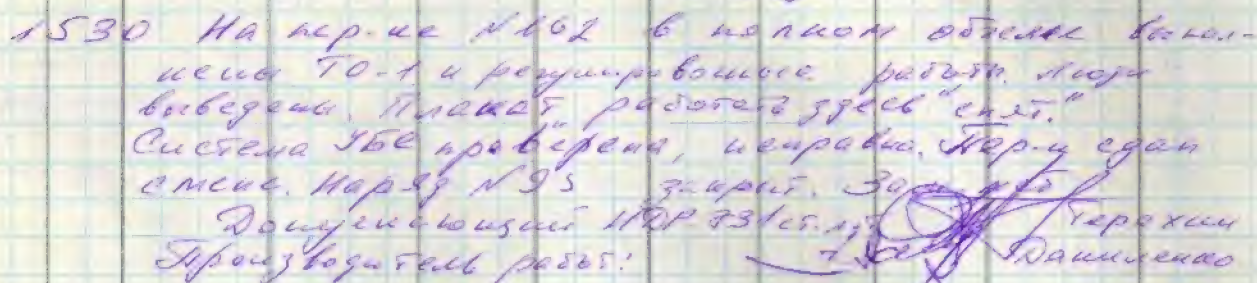 1530 На пер-не №162 в полном объеме выпол-
нены ТО-1 и регулировочные работы. Люди
выведены. Плакат "работать здесь" снят.
Система УБС проверена, исправна. Пер-н сдан
смене. Наряд №95 закрыт.
Допускающий НДР ст. Терехин
Производитель работ: Даниленко